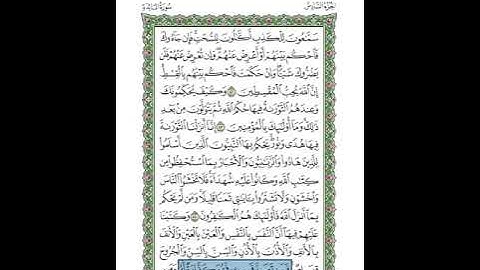 الجزء السادس
سورة المائدة
سَمَّٰعُونَ لِلۡكَذِبِ أَكَّٰلُونَ لِلسُّحۡتِۚ فَإِن جَآءُوكَ
فَٱحۡكُم بَيۡنَهُمۡ أَوۡ أَعۡرِضۡ عَنۡهُمۡۖ وَإِن تُعۡرِضۡ عَنۡهُمۡ فَلَن
يَضُرُّوكَ شَيۡـٔٗاۖ وَإِنۡ حَكَمۡتَ فَٱحۡكُم بَيۡنَهُم بِٱلۡقِسۡطِۚ
إِنَّ ٱللَّهَ يُحِبُّ ٱلۡمُقۡسِطِينَ ۝ وَكَيۡفَ يُحَكِّمُونَكَ
وَعِندَهُمُ ٱلتَّوۡرَىٰةُ فِيهَا حُكۡمُ ٱللَّهِ ثُمَّ يَتَوَلَّوۡنَ مِنۢ بَعۡدِ
ذَٰلِكَۚ وَمَآ أُوْلَٰٓئِكَ بِٱلۡمُؤۡمِنِينَ ۝ إِنَّآ أَنزَلۡنَا ٱلتَّوۡرَىٰةَ
فِيهَا هُدٗى وَنُورٞۚ يَحۡكُمُ بِهَا ٱلنَّبِيُّونَ ٱلَّذِينَ أَسۡلَمُواْ
لِلَّذِينَ هَادُواْ وَٱلرَّبَّٰنِيُّونَ وَٱلۡأَحۡبَارُ بِمَا ٱسۡتُحۡفِظُواْ مِن
كِتَٰبِ ٱللَّهِ وَكَانُواْ عَلَيۡهِ شُهَدَآءَۚ فَلَا تَخۡشَوُاْ ٱلنَّاسَ
وَٱخۡشَوۡنِ وَلَا تَشۡتَرُواْ بِـَٔايَٰتِي ثَمَنٗا قَلِيلٗاۚ وَمَن لَّمۡ يَحۡكُم
بِمَآ أَنزَلَ ٱللَّهُ فَأُوْلَٰٓئِكَ هُمُ ٱلۡكَٰفِرُونَ ۝ وَكَتَبۡنَا
عَلَيۡهِمۡ فِيهَآ أَنَّ ٱلنَّفۡسَ بِٱلنَّفۡسِ وَٱلۡعَيۡنَ بِٱلۡعَيۡنِ وَٱلۡأَنفَ
بِٱلۡأَنفِ وَٱلۡأُذُنَ بِٱلۡأُذُنِ وَٱلسِّنَّ بِٱلسِّنِّ وَٱلۡجُرُوحَ